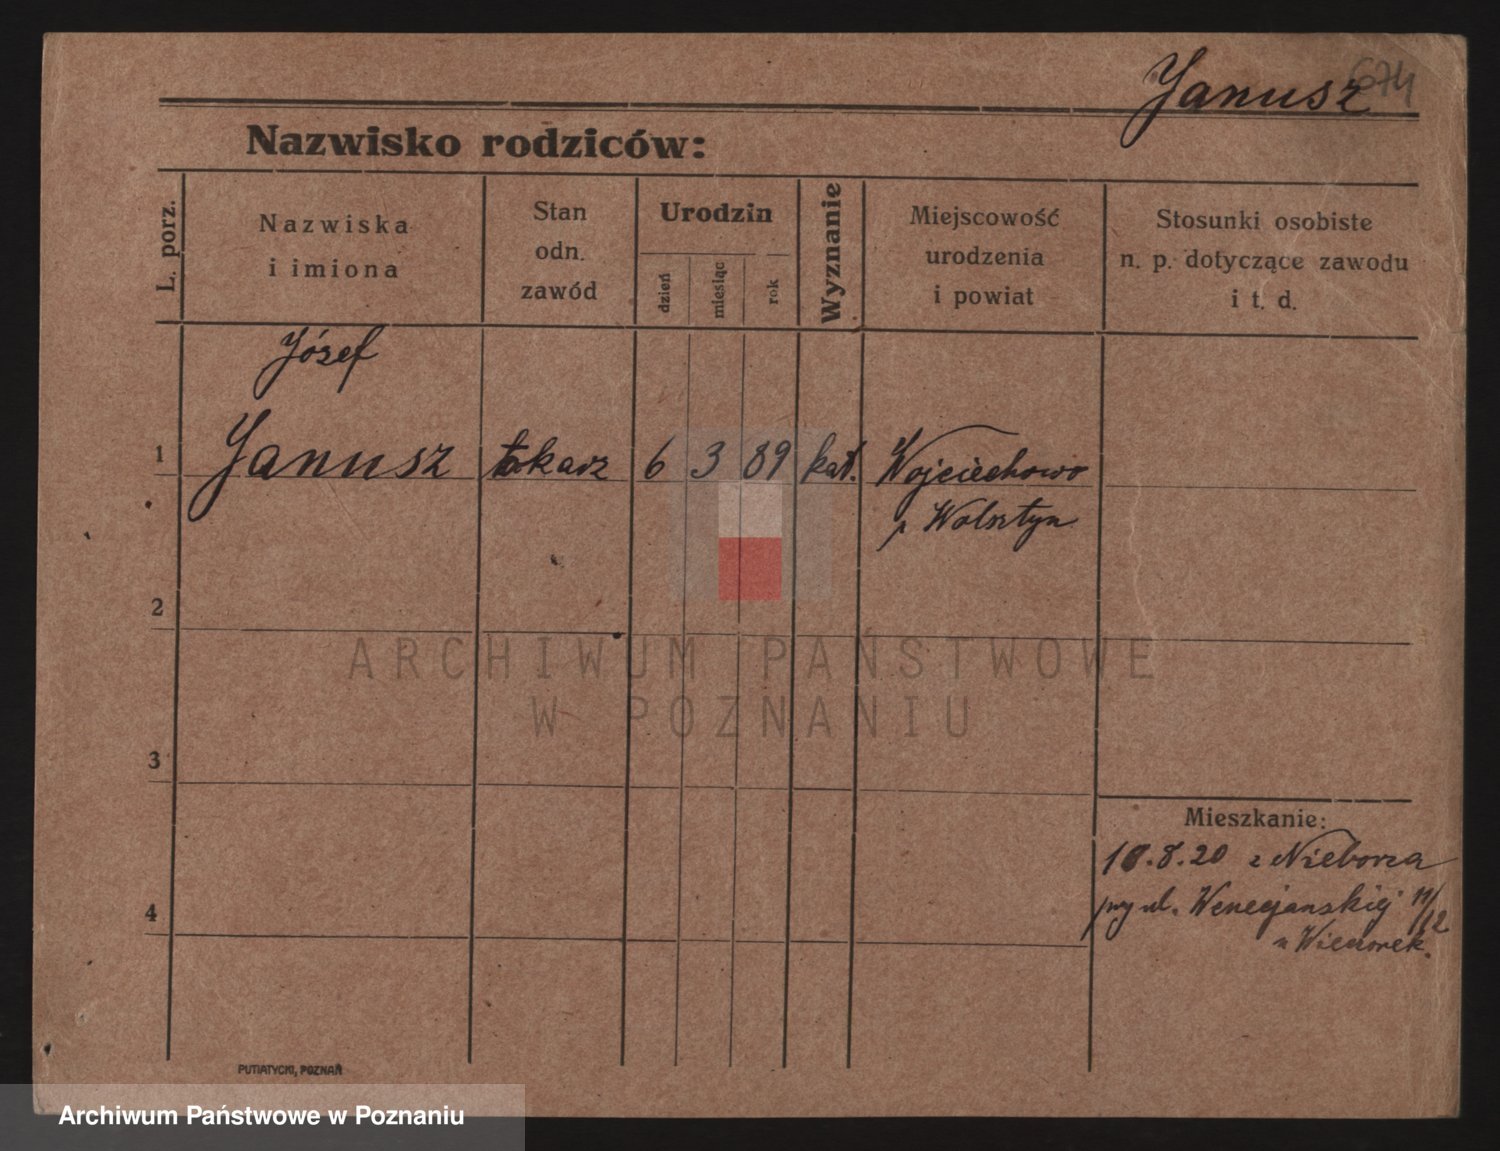 Janusz
674
Nazwisko rodziców:
L. porz.
Nazwiska
i imiona
Stan
odn.
zawód
Urodzin
dzień
miesiąc
rok
Wyznanie
Miejscowość
urodzenia
i powiat
Stosunki osobiste
n. p. dotyczące zawodu
i t. d.
Józef
1 Janusz tokarz 6 3 89 kat. Wojciechowo
p. Wolsztyn
2
ARCHIWUM PAŃSTWOWE
W POZNANIU
3
Mieszkanie:
10.8.20 z Nieborza
przy ul. Wenecjanskiej 11/12
4
u Wieczorek.
PUTIATYCKI, POZNAŃ
Archiwum Państwowe w Poznaniu